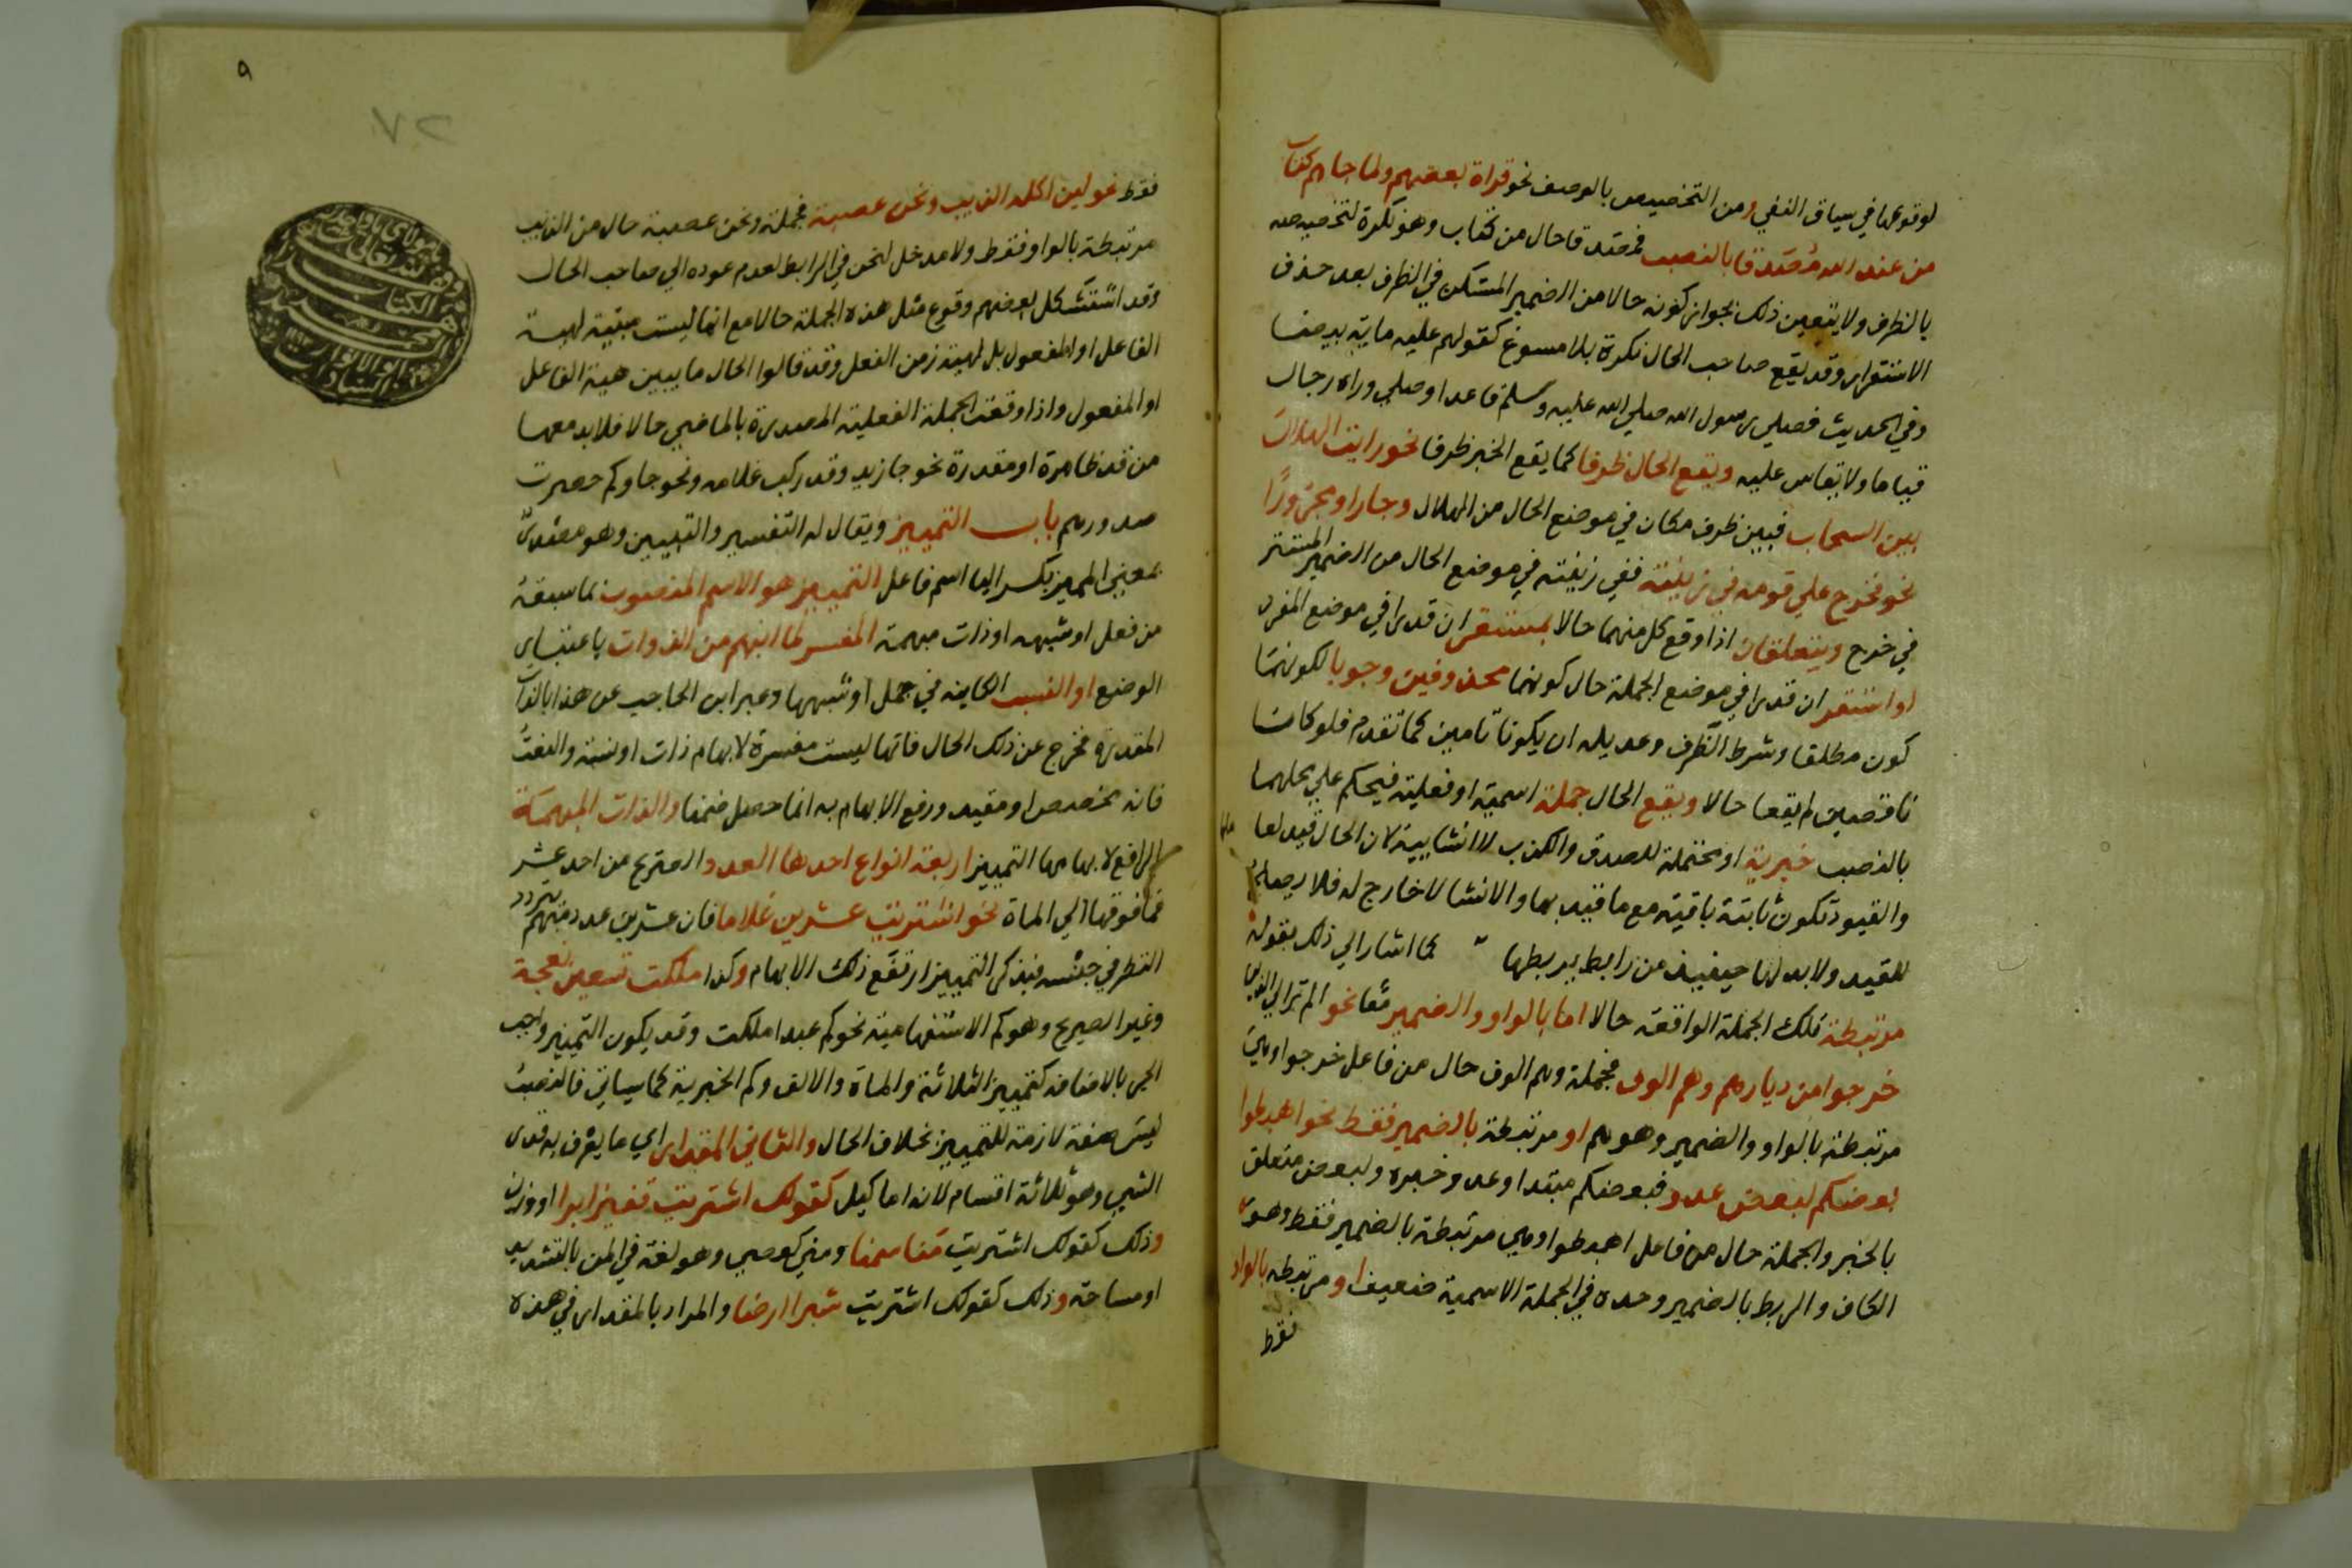 لوقوعها في سياق النفي ومن التخصيص بالوصف نحو قراة بعضهم ولما جاهم كتاب
من عند الله مُصَدقا بالنصب فمصَدقا حال من كتاب وهو نكرة لتخصيصه
بالظرف ولا يتعين ذلك لجواز كونه حالا من الضمير المستكن في الظرف بعد حذف
الاستقرار وقد يقع صاحب الحال نكرة بلا مسوغ كقولهم عليه ماية بيضا
وفي الحديث فصلي رسول الله صلي الله عليه وسلم قاعدا وصلي وراه رجال
قياما ولا يقاس عليه ويقع الحال ظرفا كما يقع الخبر ظرفا نحو رايت الهلال
بين السحاب فبين ظرف مكان في موضع الحال من الهلال وجارا ومجرورًا
نحو فخرج علي قومه في زينته ففي زينته في موضع الحال من الضمير المستتر
في خرج ويتعلقان اذا وقع كل منهما حالا بمستقر ان قدرا في موضع المفرد
او استقر ان قدرا في موضع الجملة حال كونهما محذوفين وجوبا لكونهما
كون مطلقا وشرط الظرف وعديله ان يكونا تامين كما تقدم فلو كانا
ناقصين لم يقعا حالا ويقع الحال جملة اسمية او فعلية فيحكم علي محلهما
بالنصب خبرية او محتملة للصدق والكذب لا انشايية لان الحال قيد لعاملها
والقيود تكون ثابتة باقية مع ما قيد بها والانشا لا خارج له فلا يصلح
للقيد ولا بد لها حينيذ من رابط يربطها كما اشار الي ذلك بقوله
مرتبطة تلك الجملة الواقعة حالا اما بالواو والضمير معا نحو الم تر الي الذين
خرجوا من ديارهم وهم الوف فجملة وهم الوف حال من فاعل خرجوا وهي
مرتبطة بالواو والضمير وهو هم او مرتبطة بالضمير فقط نحو اهبطوا
بعضكم لبعض عدو فبعضكم مبتدا وعدو خبره ولبعض متعلق
بالخبر والجملة حال من فاعل اهبطوا وهي مرتبطة بالضمير فقط وهو
الكاف والربط بالضمير وحده في الجملة الاسمية ضعيف او مرتبطة بالواو
فقط
٩
فقط نحو لين اكله الذيب ونحن عصبة فجملة ونحن عصبة حال من الذيب
مرتبطة بالواو فقط ولا مدخل لنحن في الرابط لعدم عوده الي صاحب الحال
وقد استشكل بعضهم وقوع مثل هذه الجملة حالا مع انها ليست مبينة لهيية
الفاعل او المفعول بل لهيية زمن الفعل وقد قالوا الحال ما يبين هيية الفاعل
او المفعول واذا وقعت الجملة الفعلية المصدرة بالماضي حالا فلا بد معها
من قد ظاهرة او مقدرة نحو جا زيد وقد ركب غلامه ونحو جاوكم حصرت
صدورهم باب التمييز ويقال له التفسير والتبيين وهو مصدر
بمعني المميز بكسر اليا اسم فاعل التمييز هو الاسم المنصوب بما سبقه
من فعل او شبهه او ذات مبهمة المفسر لما انبهم من الذوات باعتبار
الوضع او النسب الكاينة في جمل او شبهها وعبر ابن الحاجب عن هذا بالذات
المقدرة فخرج عن ذلك الحال فانها ليست مفسرة لابهام ذات او نسبة والنعت
فانه مخصص او مقيد ورفع الابهام به انما حصل ضمنا والذات المبهمة
الرافع لابهامها التمييز اربعة انواع احدها العدد الصريح من احد عشر
فما فوقها الي الماة نحو اشتريت عشرين غلاما فان عشرين عدد مبهم تردد
النظر في جنسه فبذكر التمييز ارتفع ذلك الابهام وكذا ملكت تسعين نعجة
وغير الصريح وهو كم الاستفهامية نحو كم عبدا ملكت وقد يكون التمييز واجب
الجر بالاضافة كتمييز الثلاثة والماة والالف وكم الخبرية كما سياتي فالنصب
ليس صفة لازمة للتمييز بخلاف الحال والثاني المقدار اي ما يعرف به قدر
الشي وهو ثلاثة اقسام لانه اما كيل كقولك اشتريت قفيزا برا او وزن
وذلك كقولك اشتريت منا سمنا ومني كعصي وهو لغة في المن بالتشديد
او مساحة وذلك كقولك اشتريت شبرا ارضا والمراد بالمقدار في هذه